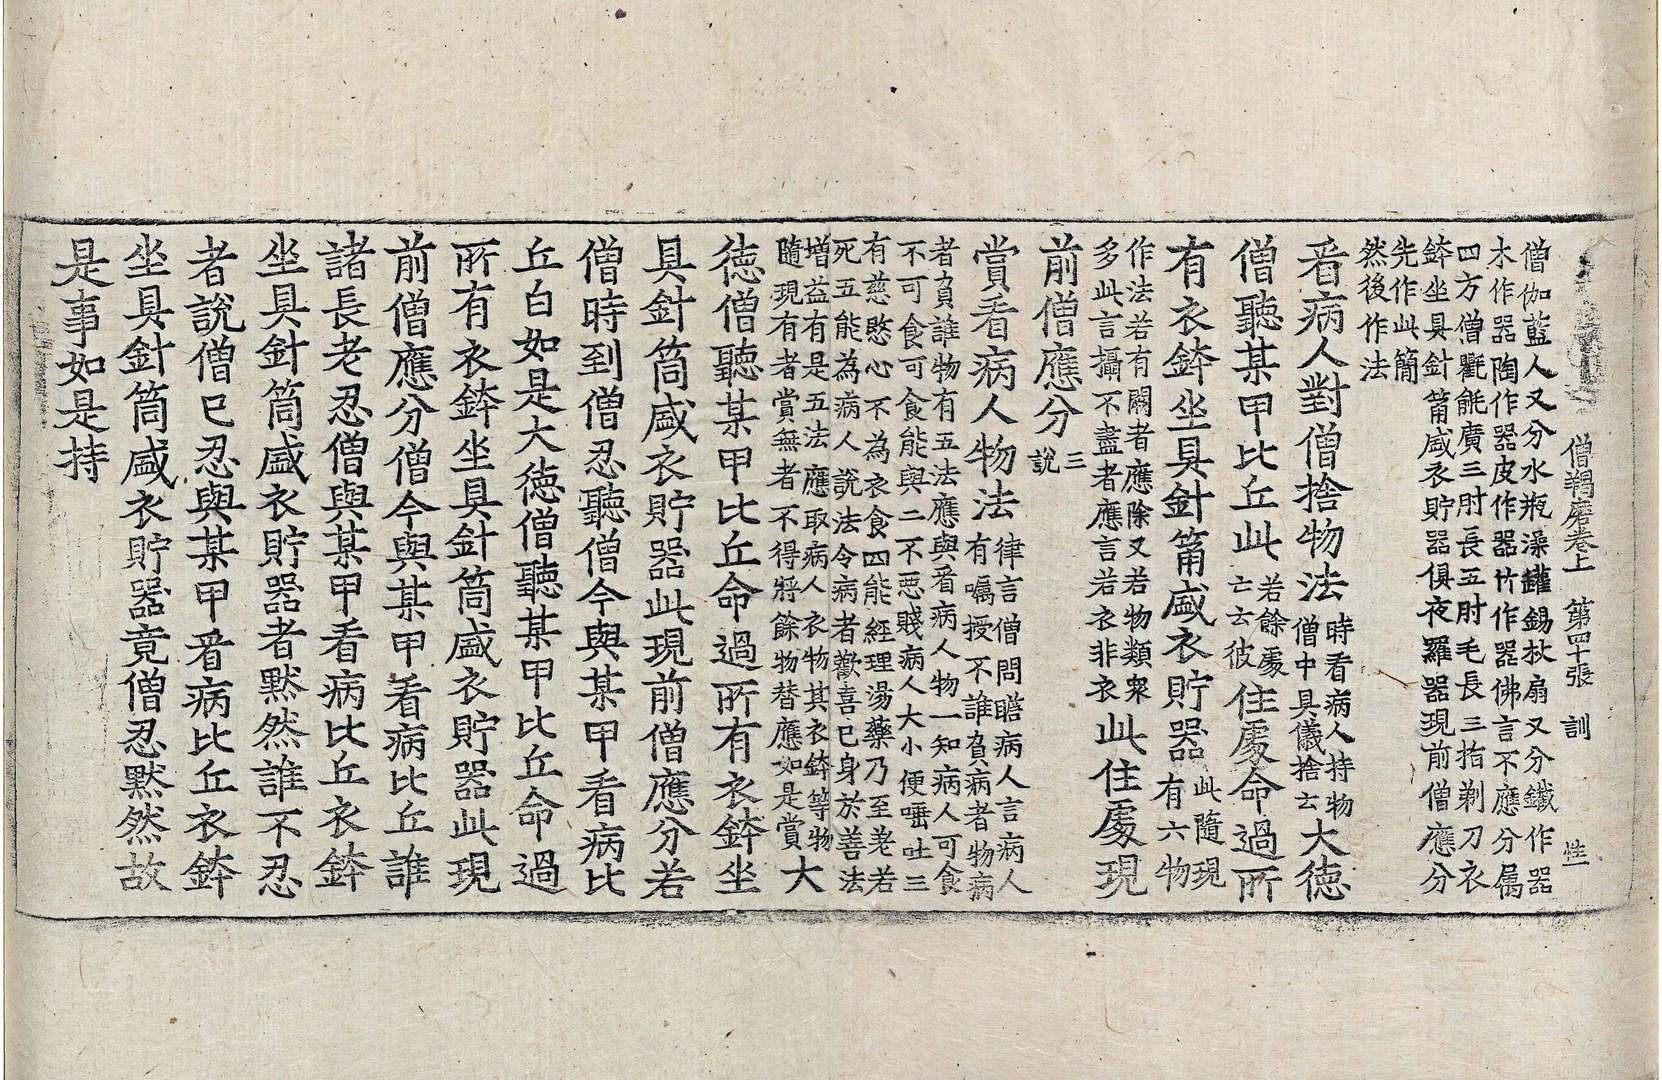 僧羯磨卷上 第四十張 訓 性
僧伽藍人又分水瓶澡罐錫杖扇又分鐵作器
木作器陶作器皮作器竹作器佛言不應分屬
四方僧氍毹廣三肘長五肘毛長三指剃刀衣
鉢坐具針筩盛衣貯器俱夜羅器現前僧應分
先作此簡
然後作法
看病人對僧捨物法時看病人持物
僧中具儀捨云大德
僧聽某甲比丘此若餘處
亡云彼住處命過所
有衣鉢坐具針筩盛衣貯器此隨現
有六物
作法若有闕者應除又若物類衆
多此言攝不盡者應言若衣非衣此住處現
前僧應分三
說
賞看病人物法律言僧問瞻病人言病人
有囑授不誰負病者物病
者負誰物有五法應與看病人物一知病人可食
不可食可食能與二不惡賤病人大小便唾吐三
有慈愍心不為衣食四能經理湯藥乃至差若
死五能為病人說法令病者歡喜已身於善法
增益有是五法應取病人衣物其衣鉢等物
隨現有者賞無者不得將餘物替應如是賞大
德僧聽某甲比丘命過所有衣鉢坐
具針筒盛衣貯器此現前僧應分若
僧時到僧忍聽僧今與某甲看病比
丘白如是大德僧聽某甲比丘命過
所有衣鉢坐具針筒盛衣貯器此現
前僧應分僧今與某甲看病比丘誰
諸長老忍僧與某甲看病比丘衣鉢
坐具針筒盛衣貯器者默然誰不忍
者說僧已忍與某甲看病比丘衣鉢
坐具針筒盛衣貯器竟僧忍默然故
是事如是持